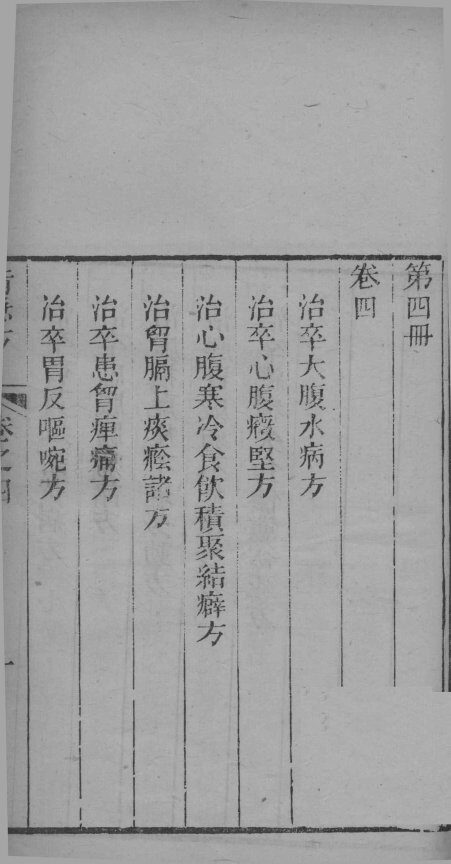 第四冊
卷四
治卒大腹水病方
治卒心腹癥堅方
治心腹寒冷食飲積聚結癖方
治胷膈上痰癊諸方
治卒患胷痺痛方
治卒胃反嘔啘方
卷之四
一